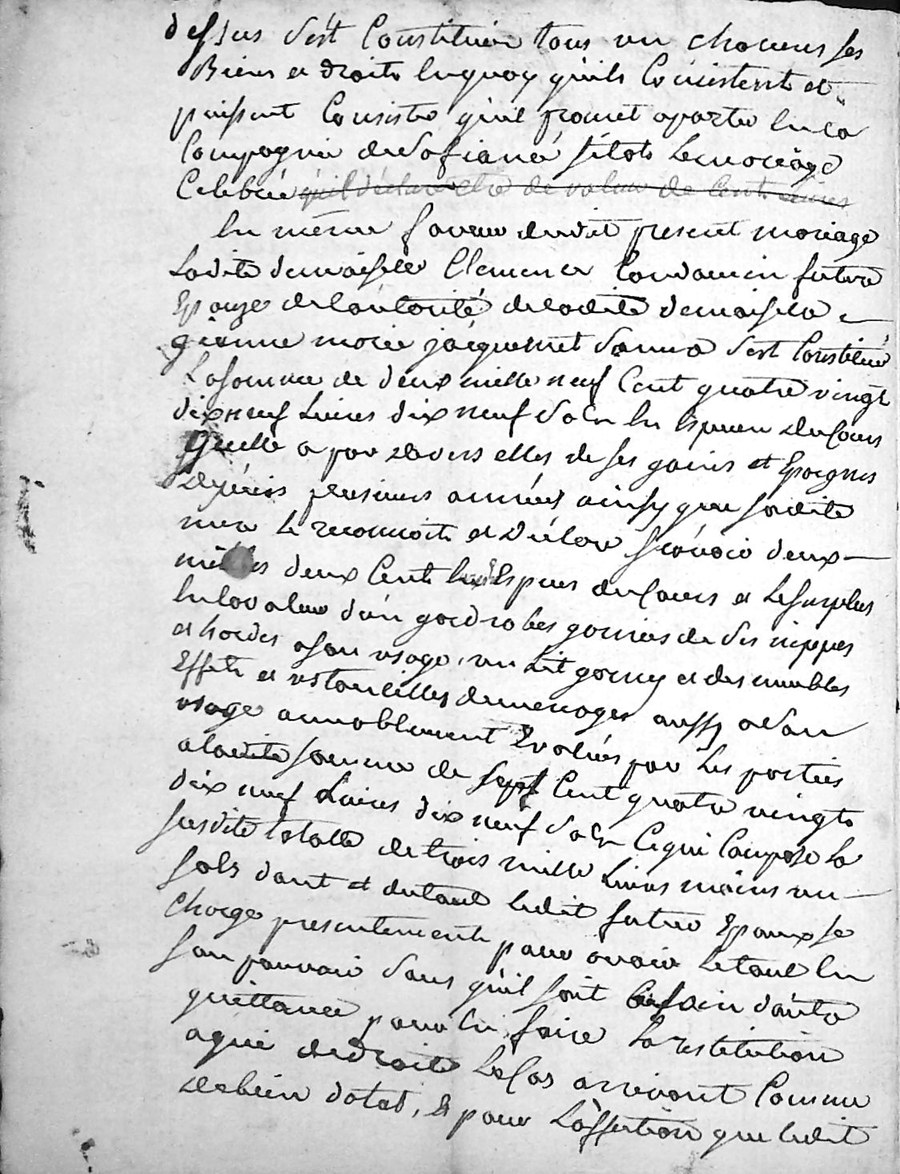 dessus s'est Constitué tous un chacuns ses
Biens et droits en quoy qu'ils Consistent et
puissent Consister qu'il promet aporter en la
Compagnie de sa fiancé sitot le mariage
Celebrée qu'il déclare être de valeur de Cent livres
En même faveur dudit present mariage
Ladite demoiselle Clemence future
Epouze de l'autorité de ladite demoiselle
marie jacquemet sa mere s'est Constituée
La somme de deux mille neuf Cent quatre vingt
dix neuf Livres dix neuf sols en Espece du Cours
qu'elle a par devers elles de ses gains et Epargnes
Depuis plusieurs années ainsy que sadite
mere Le reconnoit et Déclare sçavoir deux
milles deux Cent en Especes du Cours et Le surplus
En la valeur d'un garderobes garnies de ses nippes
et hardes a son usage, un Lit garny et des meubles
Effets et ustancilles de menages aussy a son
usage amiablement Evalués par Les parties
a ladite somme de sept Cent quatre vingts
dix neuf Livres dix neuf sols Ce qui Compose La
susdite totalle de trois mille Livres moins un
sols dont et du tout ledit futur Epoux se
Charge presentement pour avoir Le tout En
son pouvoir sans qu'il soit besoin d'autre
quittance pour En faire La restitution
a qui de droit Le Cas arrivant Comme
De bien dotal, Et pour L'affection que ledit